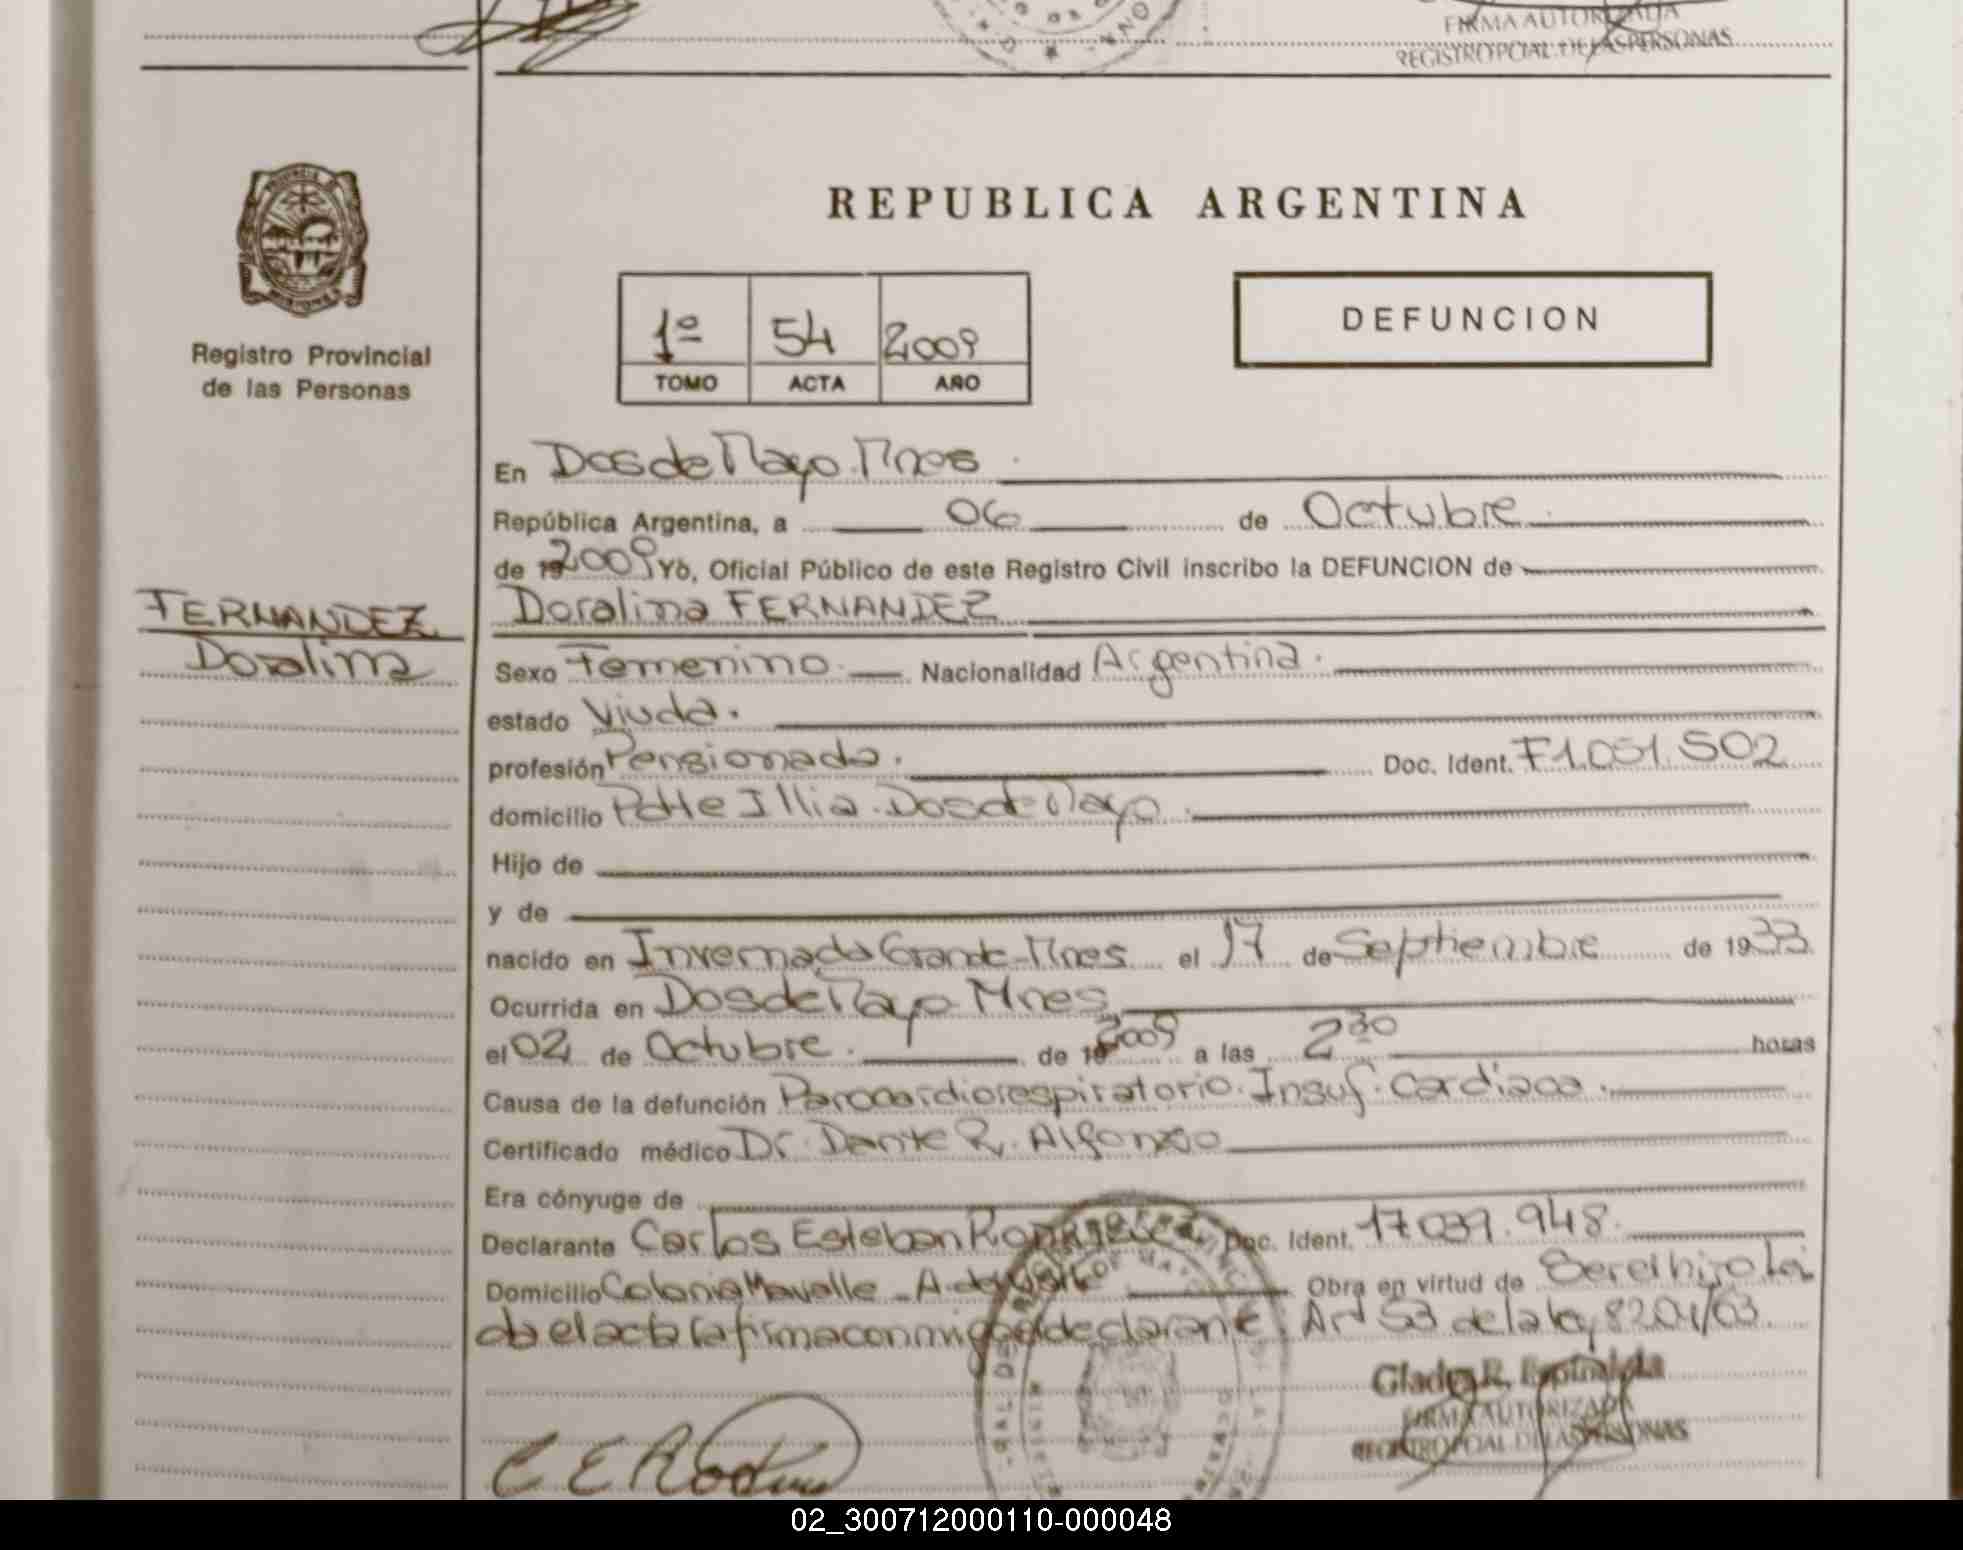 FIRMA AUTORIZADA
REGISTRO PCIAL. DE LAS PERSONAS
REPUBLICA ARGENTINA
Registro Provincial
de las Personas
1º 54 2009
TOMO ACTA AÑO
DEFUNCION
En Dos de Mayo. Mnes
República Argentina, a 06 de Octubre
de 19 2009 Yo, Oficial Público de este Registro Civil inscribo la DEFUNCION de
FERNANDEZ
Doralina
Doralina FERNANDEZ
Sexo Femenino. Nacionalidad Argentina.
estado Viuda.
profesión Pensionada. Doc. Ident. F1.051.502
domicilio Pdte Illia. Dos de Mayo.
Hijo de
y de
nacido en Invernada Grande-Mnes el 17 de Septiembre de 1933
Ocurrida en Dos de Mayo Mnes
el 02 de Octubre. de 19 2009 a las 2 30 horas
Causa de la defunción Parocardiorespiratorio. Insuf. Cardiaca.
Certificado médico Dr. Dante R. Alfonzo
Era cónyuge de
Declarante Carlos Esteban Doc. Ident. 17.039.948.
Domicilio Colonia A. del Valle Obra en virtud de Ser el hijo Lei
da el acta la firma conmigo el declarante. Art 53 de la ley 8204/63.
Gladys R. Espindola
FIRMA AUTORIZADA
REGISTRO PCIAL DE LAS PERSONAS
02_300712000110-000048